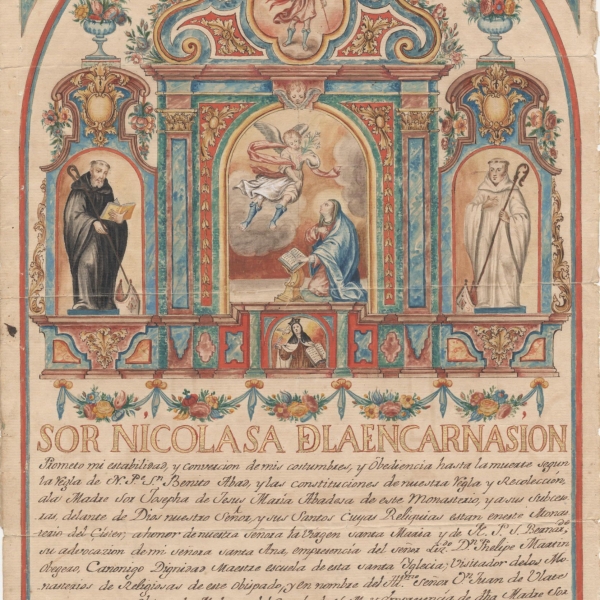 SOR NICOLASA ĐLAENCARNASIÓN
Prometo mi estabilidad, y convercion de mis costumbres, y Obediencia hasta la muerte segun
la Regla de N. P.e S.n Benito Abad, y las constituciones de nuestra Regla y Recoleccion,
ala Madre Sor Josepha de Jesus Maria Abadesa de este Monasterio, y a sus Subceso
ras, delante de Dios nuestro Señor, y sus Santos Cuyas Reliquias estan en este Monas
terio del Cister, a honor de nuestra señora la Virgen santa Maria y de N. P. S. Bernar.do
su advocazion de mi señora Santa Ana, en precencia del señor Liz.do D.n Phelipe Martin
Obegero, Canonigo Dignidad, Maestre escuela de esta Santa Yglecia; Visitador de los Mo
nasterios de Religiosas de este obispado, y en nombre del Ill.mo señor D.n Juan de Ulates